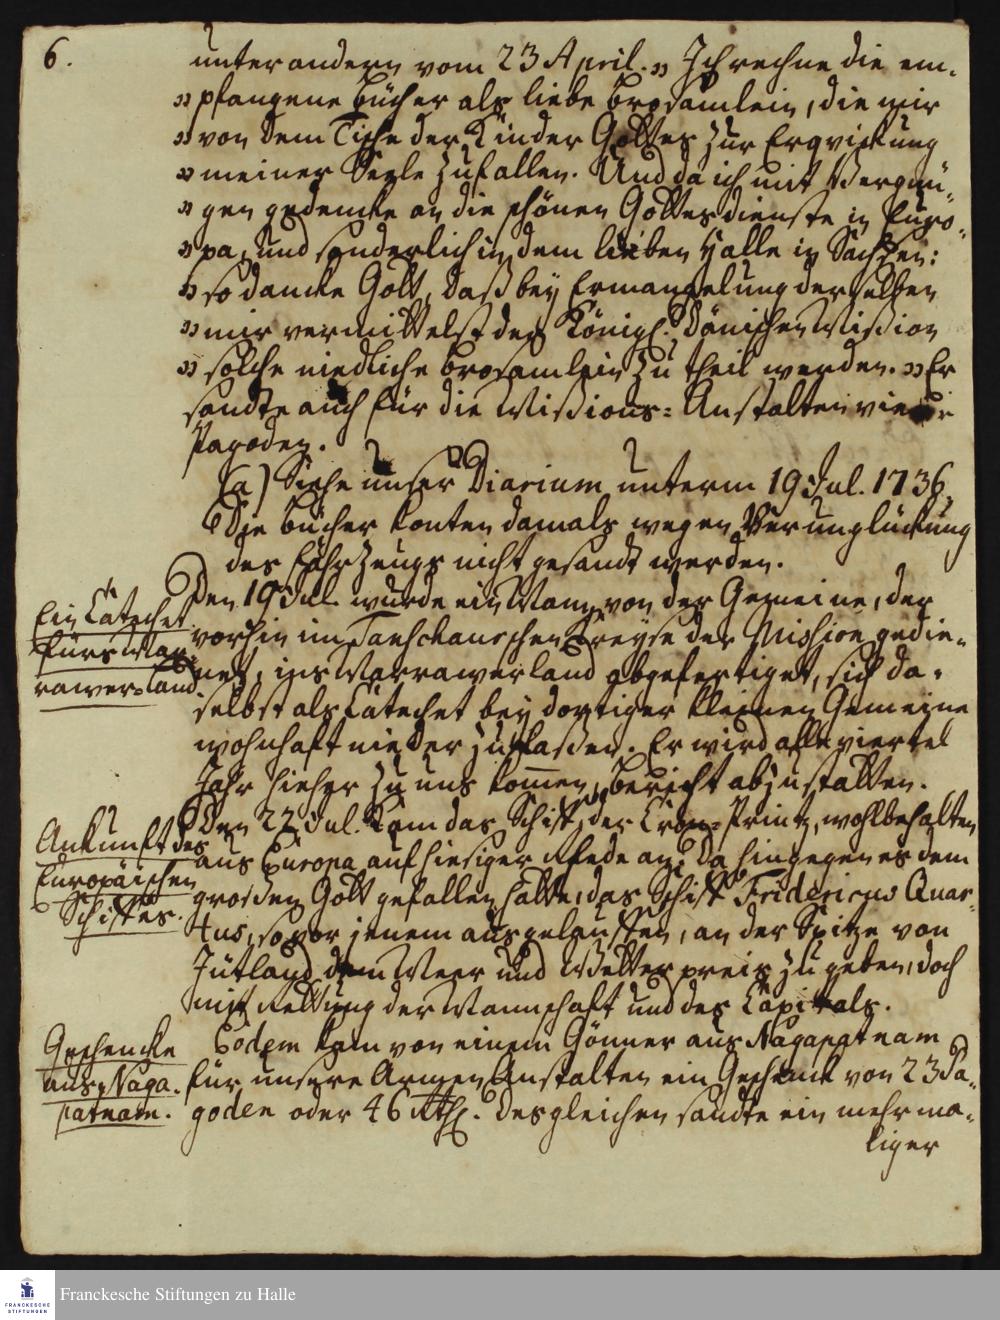 6.
unter andern vom 23 April. „ Ich rechne die em-
„ pfangene Bücher als liebe Brosämlein, die mir
„ von dem Tische der Kinder Gottes zur Erqvickung
„ meiner Seele zufallen. Und da ich mit Vergnü-
„ gen gedencke an die schönen Gottesdienste in Euro-
„ pa, und sonderlich in dem lieben Halle in Sachsen:
„ so dancke Gott, daß bey Ermangelung derselben
„ mir vermittelst der Königl. Dänischen Mißion
„ solche niedliche Brosamlein zu theil werden. „ Er
sandte auch für die Mißions-Anstalten vier
Pagoden.
(a) Siehe unser Diarium unterm 19 Jul. 1736.
Die Bücher konten damals wegen Verunglückung
des Fahrzeugs nicht gesandt werden.
Ein Catechet
fürs Mar-
rawer-Land
Den 19 Jul. wurde ein Mann von der Gemeine, der
vorhin im Tanschaurschen Creyse der Mission gedie-
net, ins Marrawerland abgefertiget, sich da-
selbst als Catechet bey dortiger kleinen Gemeine
wohnhaft nieder zu laßen. Er wird alle viertel
Jahr hieher zu uns kommen, Bericht abzustatten.
Ankunft des
Europäischen
Schiffes.
Den 22 Jul. kam das Schiff, der Cron-Printz, wohlbehalten
aus Europa auf hiesiger Rhede an: Da hingegen es dem
großen Gott gefallen hatte, das Schiff Fridericus Quar-
tus, so vor jenem ausgelauffen, an der Spitze von
Jütland dem Meer und Wetter preis zu geben, doch
mit Rettung der Mannschaft und des Capitals.
Geschencke
aus Naga-
patnam.
Eodem kam von einem Gönner aus Nagapatnam
für unsere Armen Anstalten ein Geschenck von 23 Pa-
goden oder 46 Rthl. Desgleichen sandte ein mehrma-
liger
FRANCKESCHE
STIFTUNGEN
Franckesche Stiftungen zu Halle